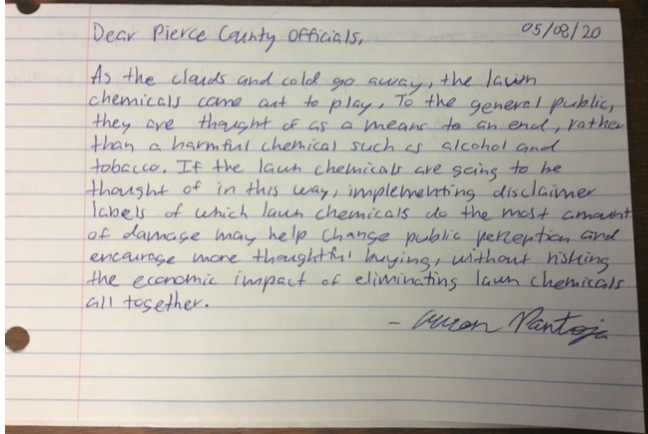 05/08/20
Dear Pierce County Officials,
As the clouds and cold go away, the lawn
chemicals come out to play. To the general public,
they are thought of as a means to an end, rather
than a harmful chemical such as alcohol and
tobacco. If the lawn chemicals are going to be
thought of in this way, implementing disclaimer
labels of which lawn chemicals do the most amount
of damage may help change public perception and
encourage more thoughtful buying, without risking
the economic impact of eliminating lawn chemicals
all together.
- Pantoja